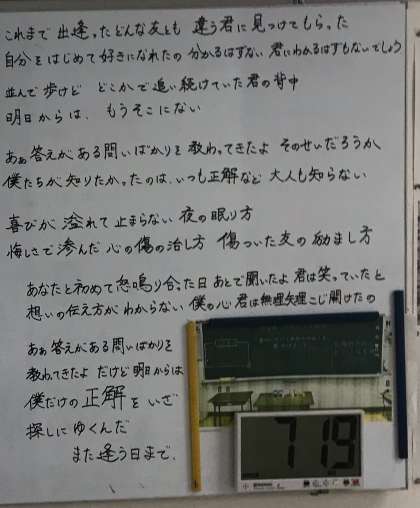 これまで出逢ったどんな友とも 違う君に見つけてもらった
自分をはじめて好きになれたの 分かるはずない 君にわかるはずもないでしょう
並んで歩けど どこかで追い続けていた君の背中
明日からは、もうそこにない
あぁ答えがある問いばかりを教わってきたよ そのせいだろうか
僕たちが知りたかったのは、いつも正解など大人も知らない
喜びが溢れて止まらない夜の眠り方
悔しさで滲んだ心の傷の治し方 傷ついた友の励まし方
あなたと初めて怒鳴り合った日 あとで聞いたよ君は笑っていたと
想いの伝え方がわからない 僕の心 君は無理矢理こじ開けたの
あぁ答えがある問いばかりを
教わってきたよ だけど明日からは
僕だけの正解をいざ
探しにゆくんだ
また逢う日まで、
719